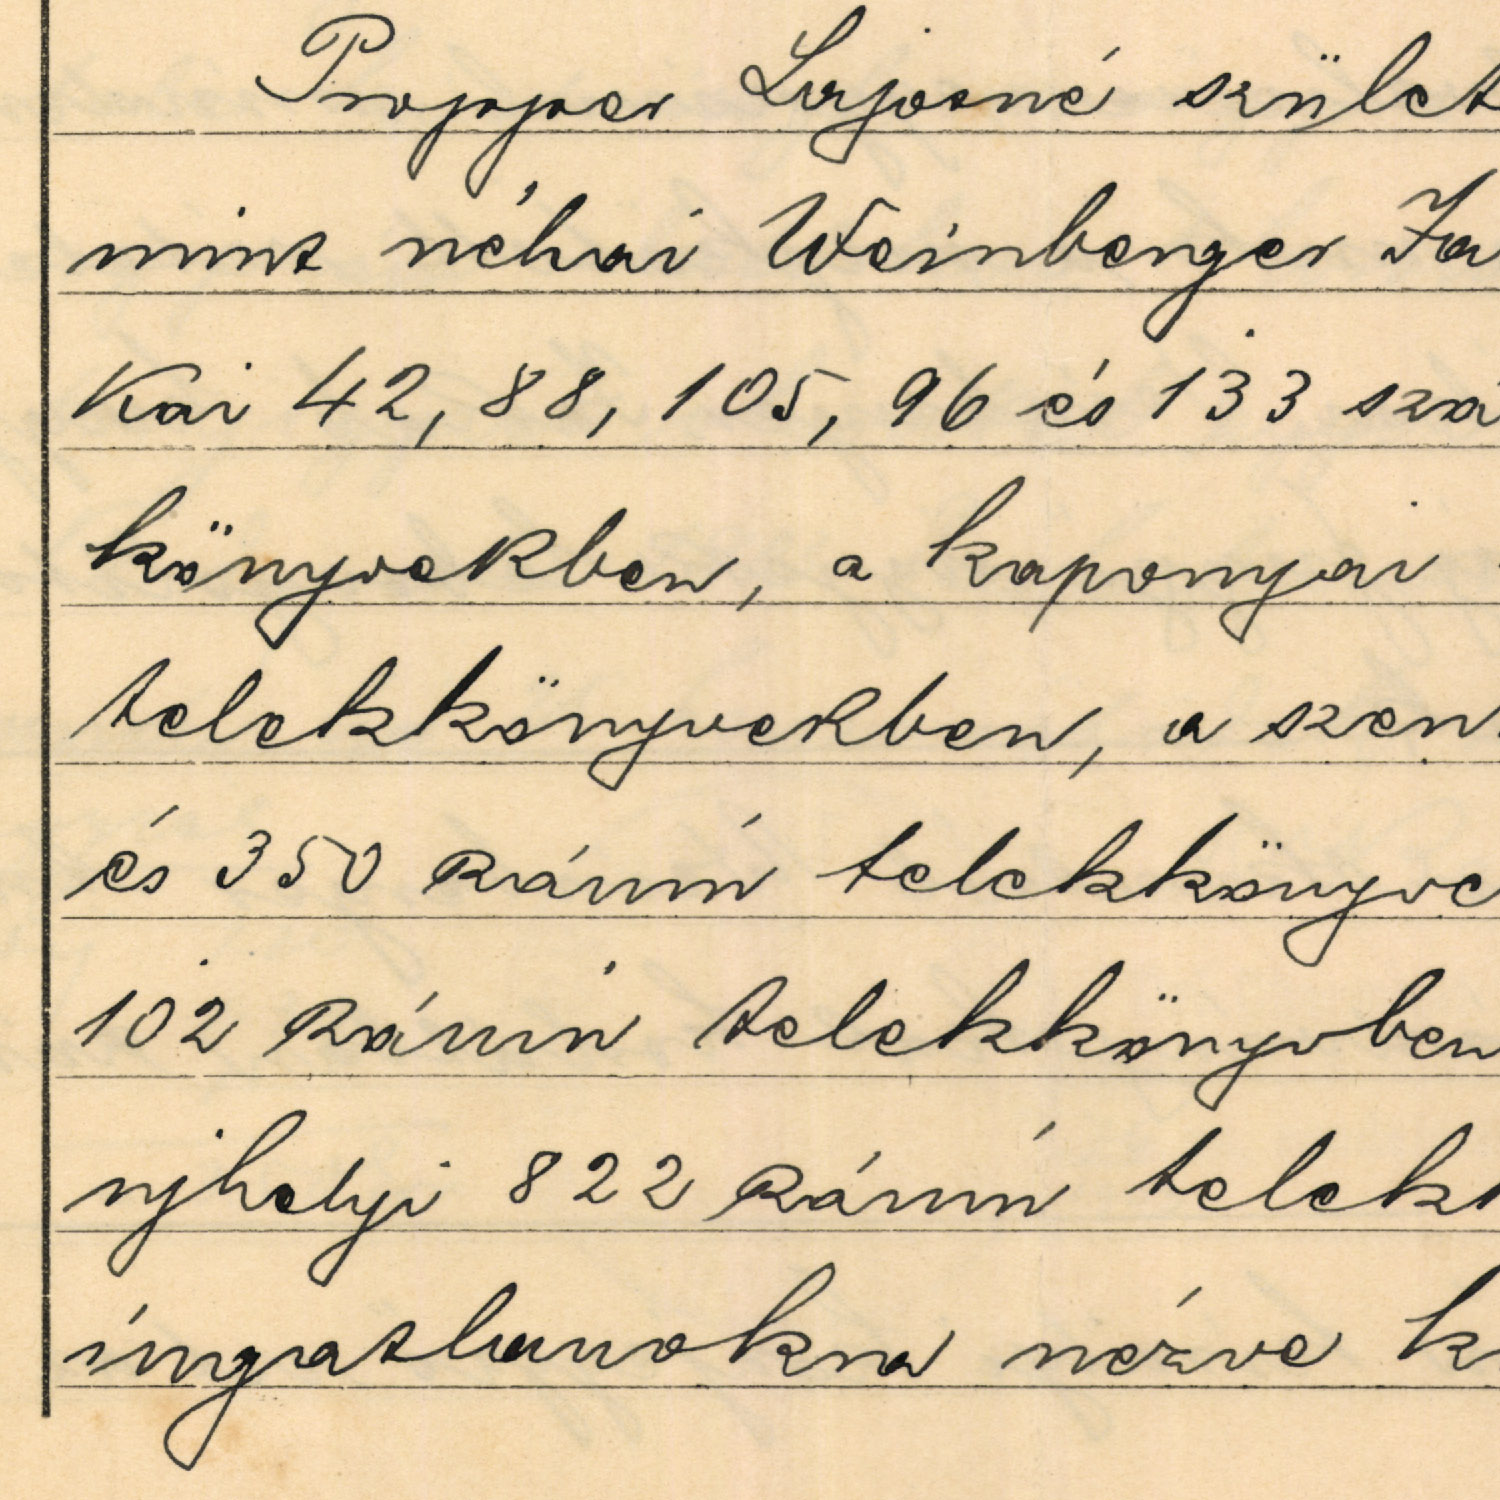 Propper Lajosné szület
mint néhai Weinberger Ja
kai 42, 88, 105, 96 és 133 szá
könyvekben, a kaponyai
telekkönyvekben, a szen
és 350 számú telekkönyve
102 számú telekkönyvben
ujhelyi 822 számú telek
ingatlanokra nézve k